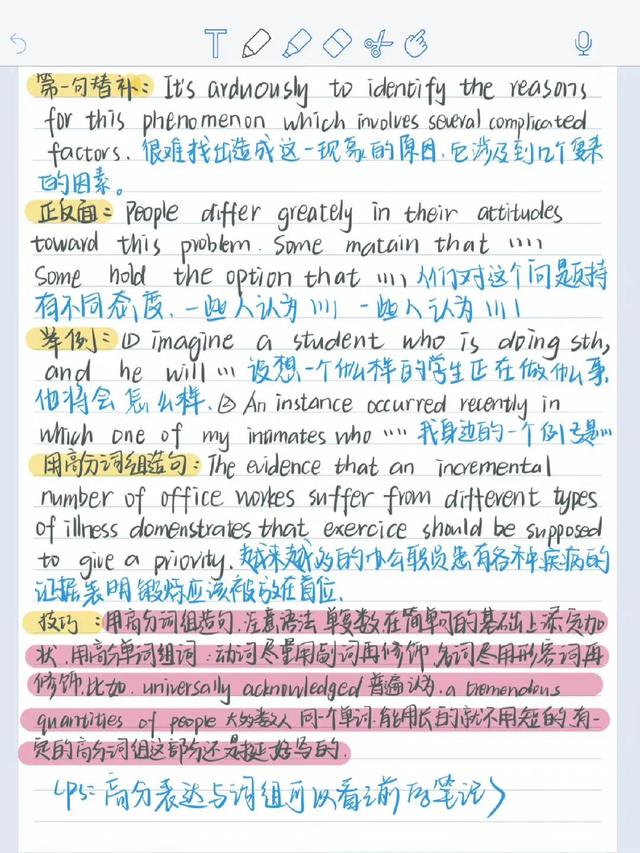 第一句替补: It's arduously to identify the reasons
for this phenomenon which involves several complicated
factors. 很难找出造成这一现象的原因,它涉及到几个复杂
的因素。
正反面: People differ greately in their attitudes
toward this problem. Some matain that ....
Some hold the option that .... 人们对这个问题持
有不同态度, 一些人认为 .... 一些人认为 ....
举例: ① imagine a student who is doing sth,
and he will ... 设想一个什么样的学生正在做什么事,
他将会怎么样. ② An instance occurred recently in
which one of my intimates who .... 我身边的一个例子是...
用高分词组造句: The evidence that an incremental
number of office workes suffer from different types
of illness domenstrates that exercice should be supposed
to give a priority. 越来越多的办公职员患有各种疾病的
证据表明锻炼应该被放在首位.
技巧: 用高分词组造句,注意语法 单复数在简单句的基础上添定加
状,用高分单词组词: 动词尽量用副词再修饰,名词尽用形容词再
修饰,比如, universally acknowledged 普遍认为, a tremendous
quantities of people 大多数人 同一个单词,能用长的就不用短的,有一
定的高分词组这部分还是挺好写的.
(PS: 高分表达与词组可以看之前的笔记)